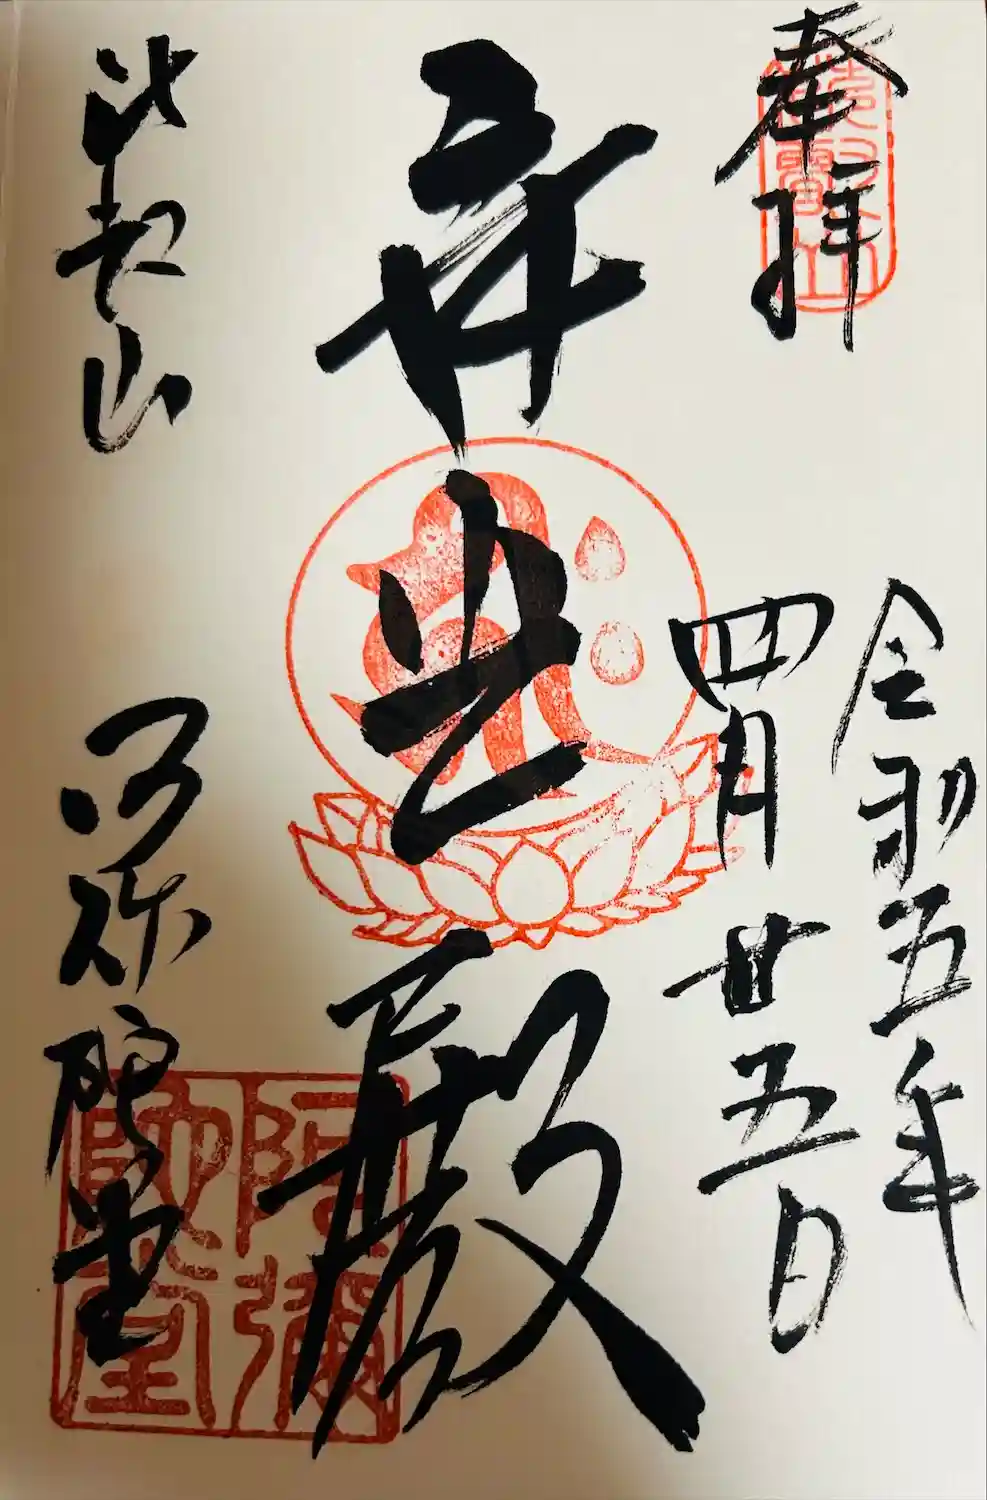 奉拝
令和五年
四月廿五日
光殿
比叡山
阿弥陀堂
阿彌
陀堂